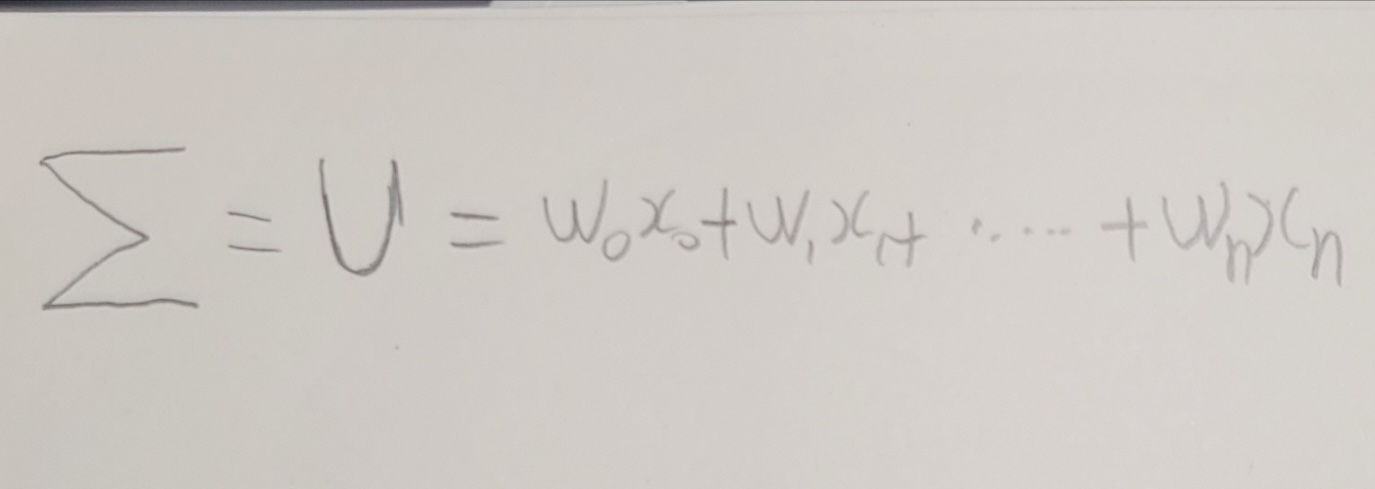 ∑ = U = w₀x₀ + w₁x₁ + ...... + wₙxₙ